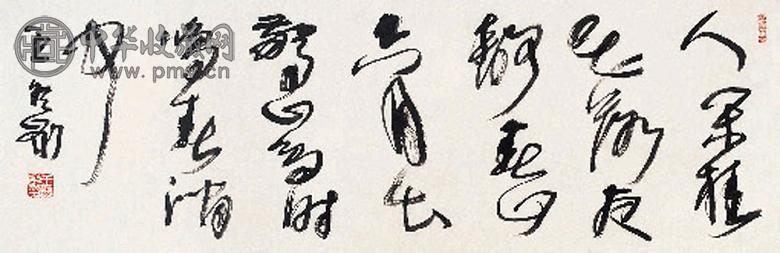 人闲桂
花落夜
静春山
空月出
惊山鸟时
鸣春涧
中
中华收藏网
www.pmcn